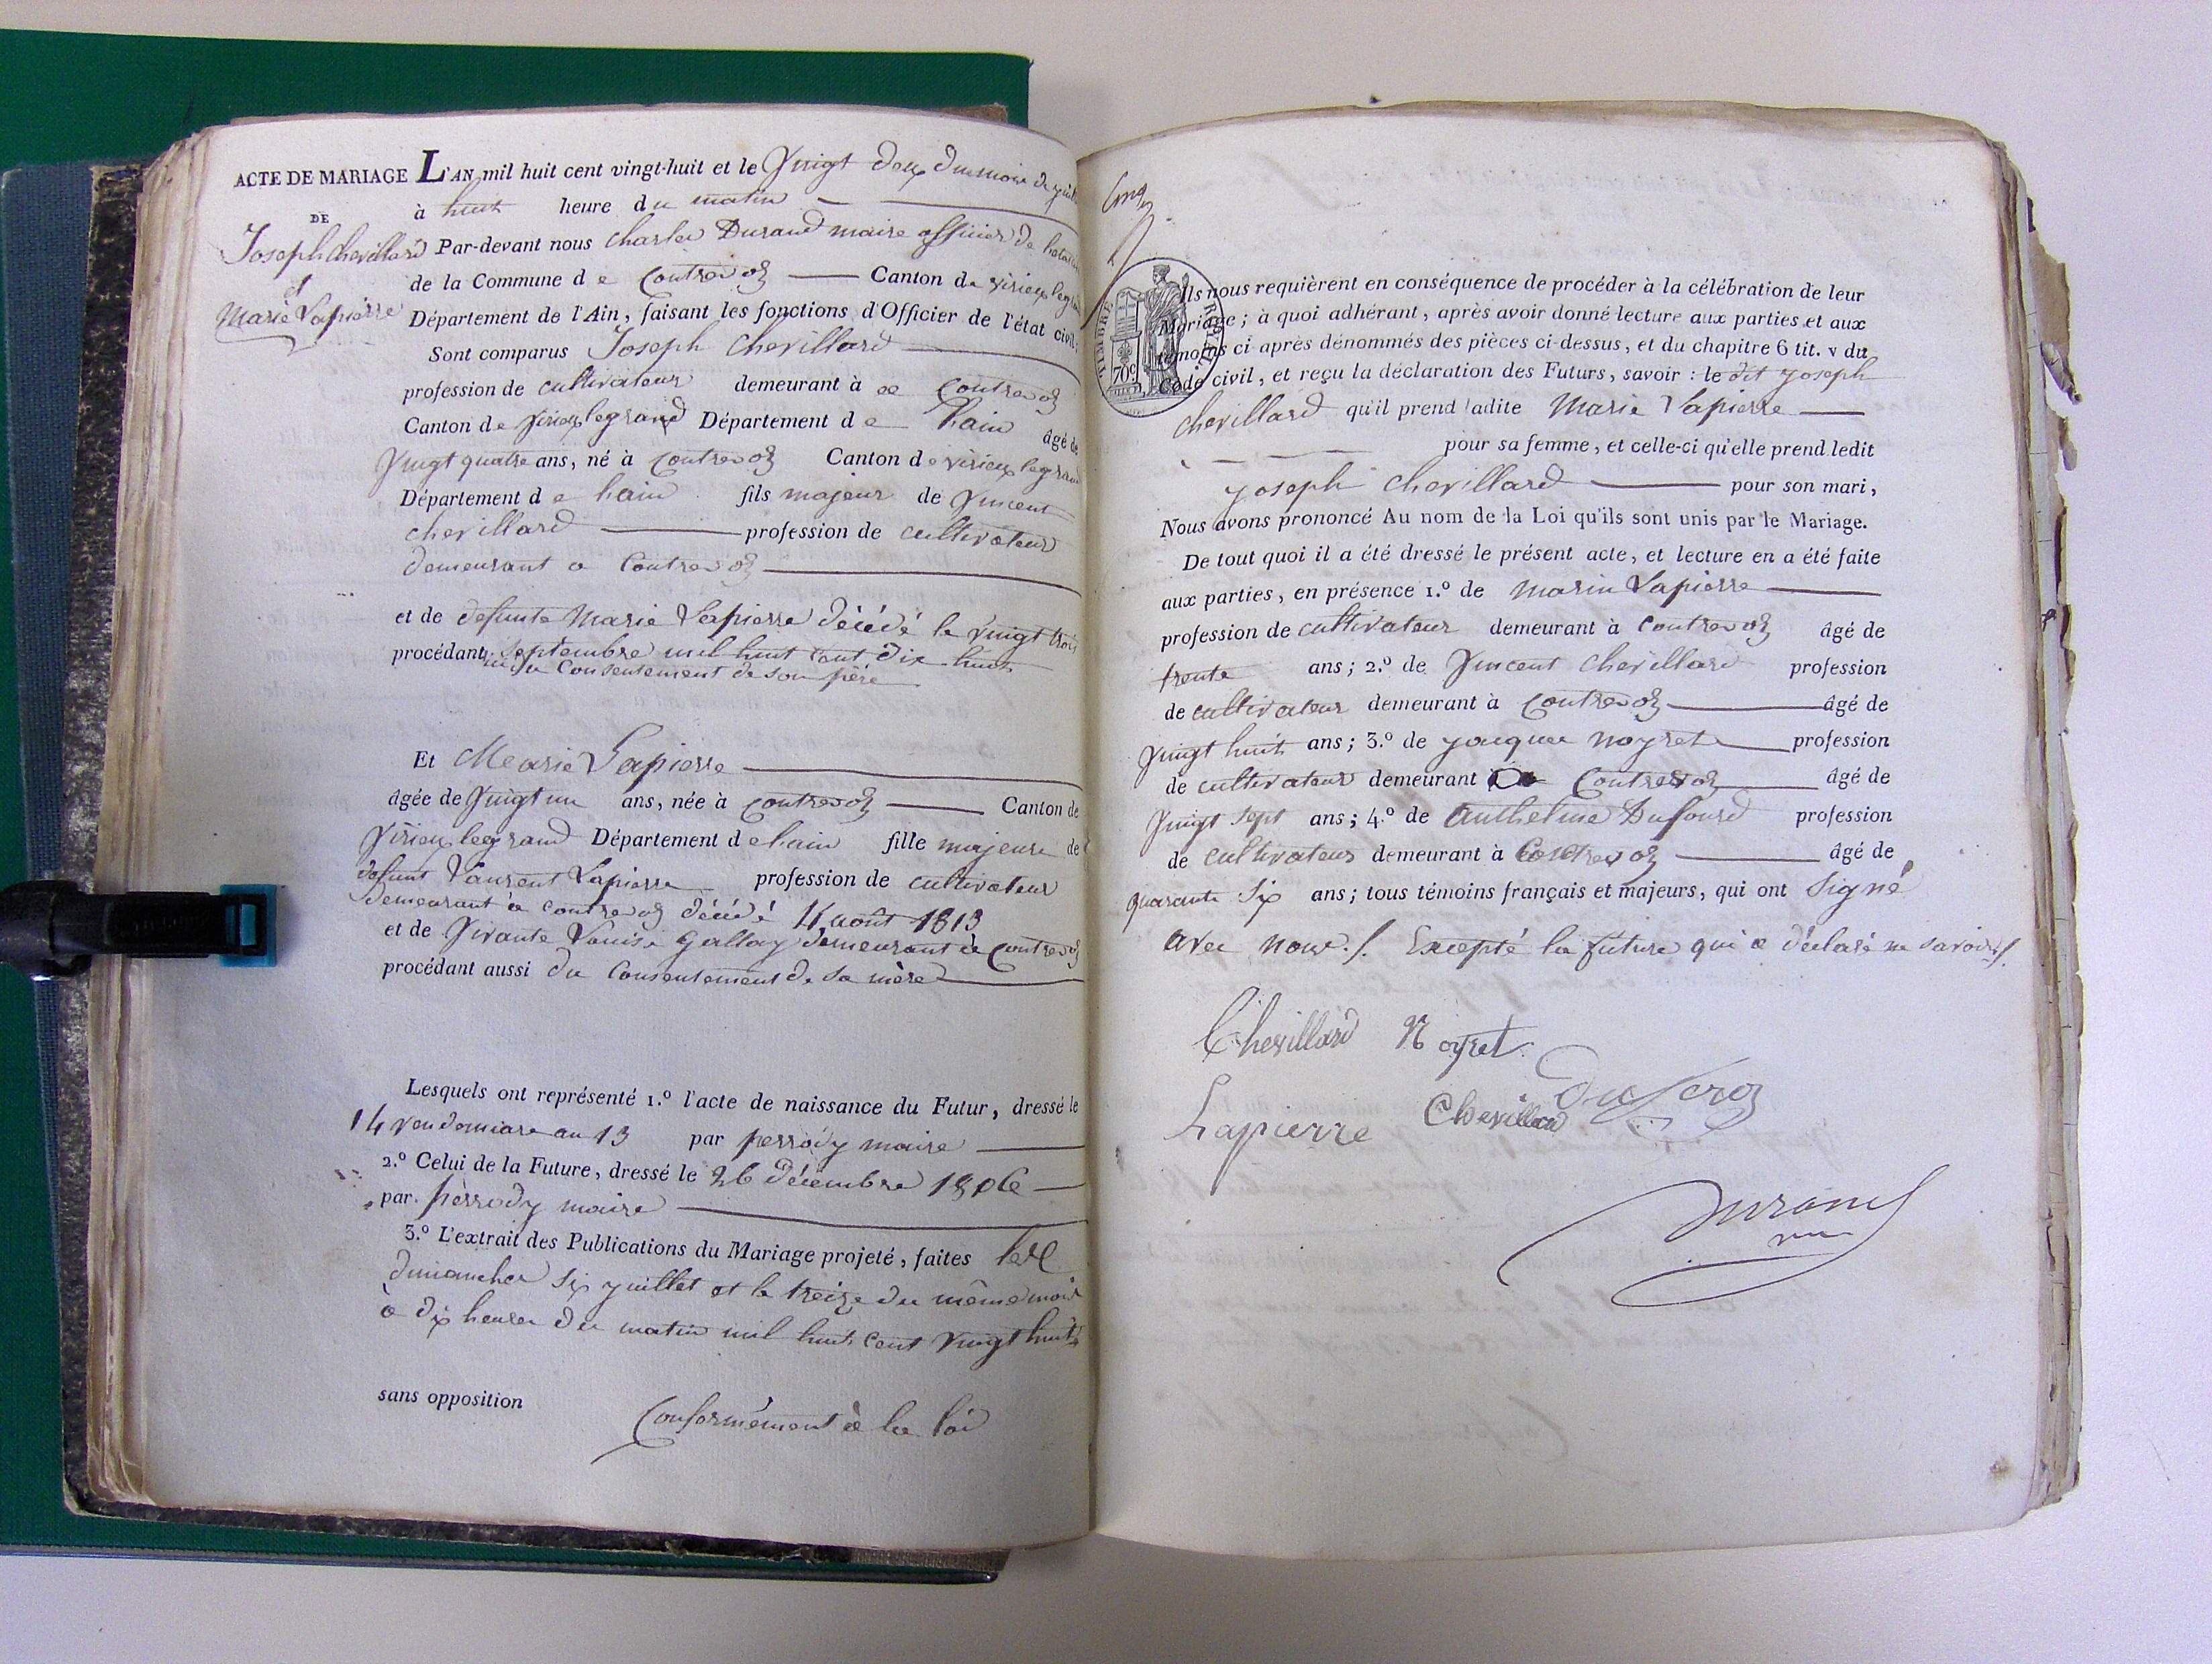 ACTE DE MARIAGE L'AN mil huit cent vingt-huit et le vingt deux du mois de
DE
à huit heure du matin
Joseph chevillard
et
Marie Lapierre
Par-devant nous charles Durand maire officier de
de la Commune de Contrevoz Canton de virieu legrand
Département de l'Ain, faisant les fonctions d'Officier de l'état civil;
Sont comparus Joseph chevillard
profession de cultivateur demeurant à Contrevoz
Canton de virieu legrand Département de lain âgé de
vingt quatre ans, né à Contrevoz Canton de virieu legrand
Département de lain fils majeur de vincent
chevillard profession de cultivateur
demeurant a Contrevoz
et de defunte Marie Lapierre décédé le vingt trois
procédant septembre mil huit cent dix huit
du Consentement de son père
Et Marie Lapierre
âgée de vingt un ans, née à Contrevoz Canton de
virieu legrand Département de lain fille majeure de
defunt Laurent Lapierre profession de cultivateur
demeurant a contrevoz décédé août 1813
et de vivante Louise gallay demeurant à Contrevoz
procédant aussi du Consentement de sa mère
Lesquels ont représenté 1.º l'acte de naissance du Futur, dressé le
14 vendemiare an 13 par perrody maire
2.º Celui de la Future, dressé le 26 décembre 1806
par perrody maire
3.º L'extrait des Publications du Mariage projeté, faites les
dimanches six juillet et le treize du même mois
à dix heures du matin mil huit cent vingt huit
sans opposition
Conformément à la loi
TIMBRE ROYAL
70c
Ils nous requièrent en conséquence de procéder à la célébration de leur
Mariage; à quoi adhérant, après avoir donné lecture aux parties et aux
témoins ci-après dénommés des pièces ci-dessus, et du chapitre 6 tit. v du
Code civil, et reçu la déclaration des Futurs, savoir: le dit joseph
chevillard qu'il prend ladite Marie Lapierre
pour sa femme, et celle-ci qu'elle prend ledit
joseph chevillard pour son mari,
Nous avons prononcé Au nom de la Loi qu'ils sont unis par le Mariage.
De tout quoi il a été dressé le présent acte, et lecture en a été faite
aux parties, en présence 1.º de marin Lapierre
profession de cultivateur demeurant à Contrevoz âgé de
trente ans; 2.º de vincent chevillard profession
de cultivateur demeurant à Contrevoz âgé de
vingt huit ans; 3.º de jacques noyret profession
de cultivateur demeurant Contrevoz âgé de
vingt sept ans; 4.º de anthelme Dufourd profession
de cultivateur demeurant à Contrevoz âgé de
quarante six ans; tous témoins français et majeurs, qui ont signé
avec nous ./. Excepté la future qui a déclaré ne savoir ./.
Chevillard Noyret
Lapierre Chevillard
Durand